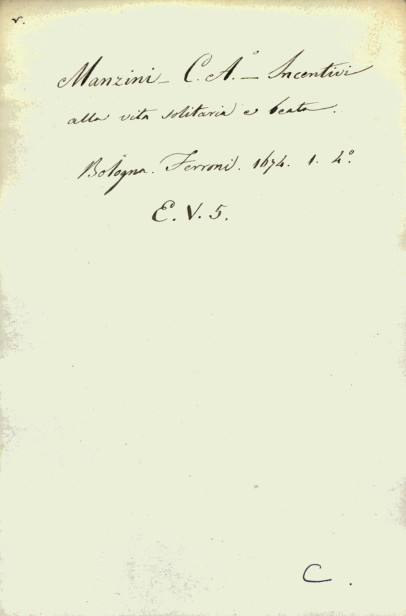 v.
Manzini - C. A.º - Incentivi
alla vita solitaria e beata.
Bologna. Ferroni. 1674. 1. 4º.
E. V. 5.
C.